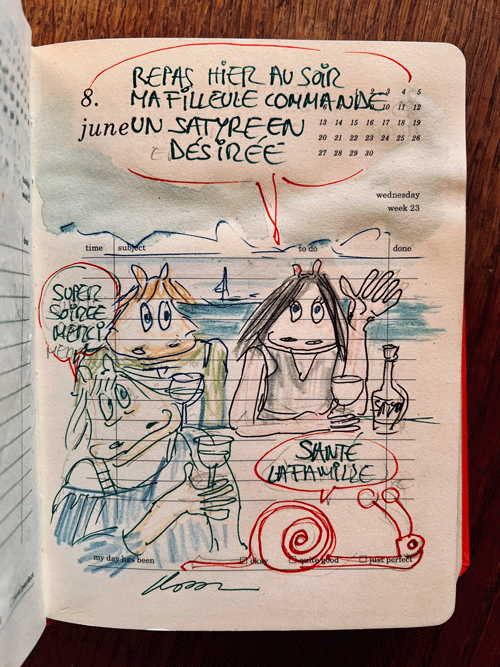 REPAS HIER AU SOIR
8.
MA FILLEULE COMMANDE
june
UN SATYRE EN
DÉSIRÉE
2 3 4 5
10 11 12
13 14 15 16 17 18 19
20 21 22 23 24 25 26
27 28 29 30
wednesday
week 23
time subject to do done
SUPER
SOIRÉE
MERCI
SANTÉ
LA FAMILLE
my day has been okay quite good just perfect